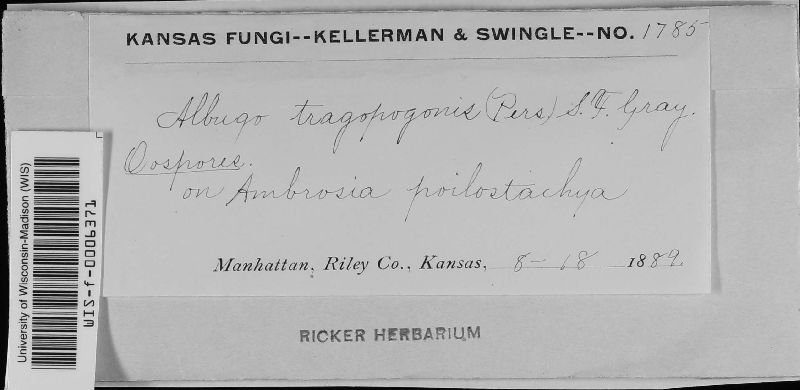 KANSAS FUNGI--KELLERMAN & SWINGLE--NO. 1785
Albugo tragopogonis (Pers) S. F. Gray.
Oospores.
on Ambrosia psilostachya
Manhattan, Riley Co., Kansas, 8-18 1889.
RICKER HERBARIUM
University of Wisconsin-Madison (WIS)
WIS-f-0006371